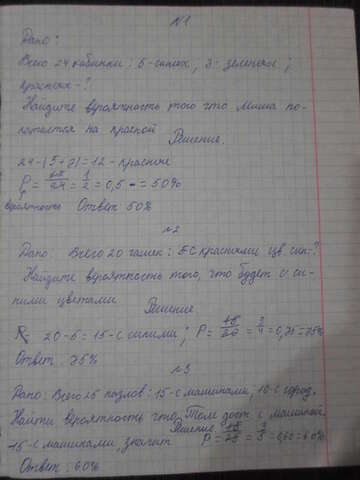 №1
Дано:
Всего 24 кабинки: 5-синих, 7-зеленых;
красных-?
Найдите вероятность того что Миша по-
катается на красной
Решение.
24-(5+7)=12-красные
P = 12/24 = 1/2 = 0,5 = 50%
вероятность Ответ 50%
№2
Дано: Всего 20 чашек: 5 с красными цв. син-?
Найдите вероятность того, что будет с си-
ними цветами
Решение
20-5=15-с синими; P = 15/20 = 3/4 = 0,75 = 75%
Ответ: 75%
№3
Дано: Всего 25 пазлов: 15-с машинами, 10-с город.
Найти вероятность что Толе дост. с машиной
Решение
15-с машинами, значит P = 15/25 = 3/5 = 0,60 = 60%
Ответ: 60%